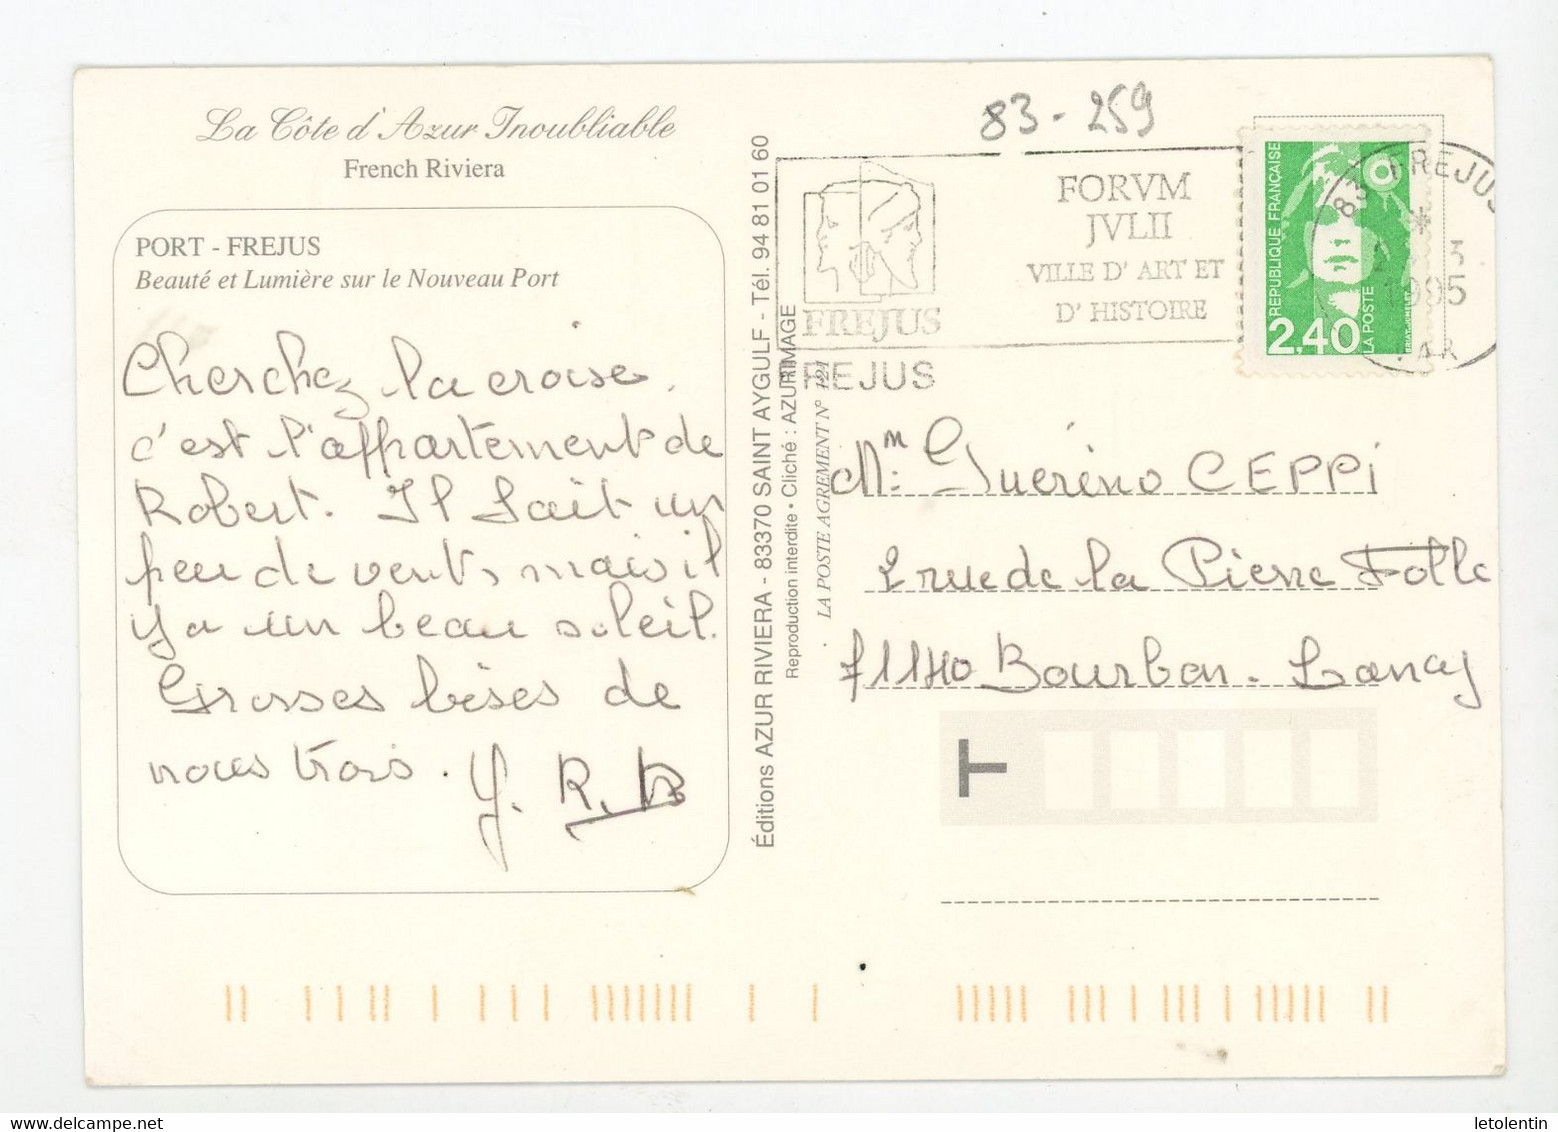 La Côte d'Azur Inoubliable
French Riviera
PORT - FREJUS
Beauté et Lumière sur le Nouveau Port
Cherchez la croise,
c'est l'appartement de
Robert. Il fait un
peu de vent, mais il
y a un beau soleil.
Grosses bises de
nous trois.
Y. R. B
Éditions AZUR RIVIERA - 83370 SAINT AYGULF - Tél. 94 81 01 60
Reproduction interdite • Cliché : AZURIMAGE
LA POSTE AGREMENT N°
83-259
FORVM
JVLII
VILLE D'ART ET
D'HISTOIRE
FREJUS
FREJUS
REPUBLIQUE FRANÇAISE
2,40
LA POSTE
83 FREJUS
*
3
1995
VAR
Mm Guérino CEPPi
2 rue de la Pierre Folle
71140 Bourbon-Lancy
T
letolentin